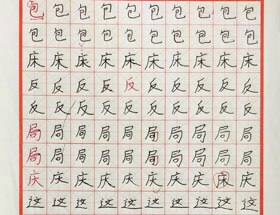 包包包包包包包包包
包包包包包包包包包
床床床床床床床床床
反反反反反反反反反
反反反反反反反反反
局局局局局局局局局
局局局局局局局局局
庆床床床床床床床床
这这这这这这这这这